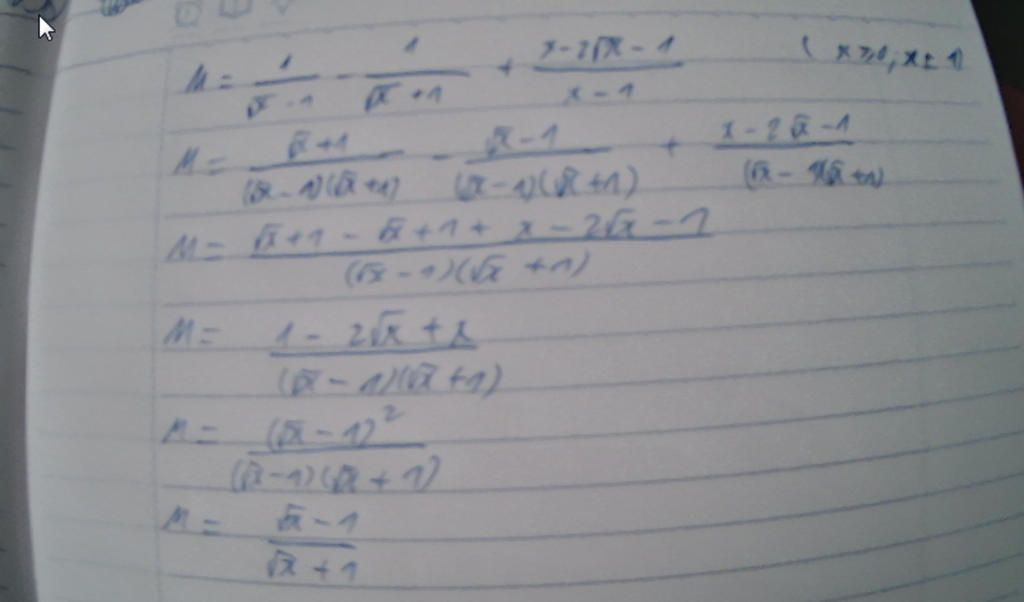 M = \frac{1}{\sqrt{x}-1} - \frac{1}{\sqrt{x}+1} + \frac{x-2\sqrt{x}-1}{x-1} (x ≥ 0, x ≠ 1)
M = \frac{\sqrt{x}+1}{(\sqrt{x}-1)(\sqrt{x}+1)} - \frac{\sqrt{x}-1}{(\sqrt{x}-1)(\sqrt{x}+1)} + \frac{x-2\sqrt{x}-1}{(\sqrt{x}-1)(\sqrt{x}+1)}
M = \frac{\sqrt{x}+1-\sqrt{x}+1+x-2\sqrt{x}-1}{(\sqrt{x}-1)(\sqrt{x}+1)}
M = \frac{1-2\sqrt{x}+x}{(\sqrt{x}-1)(\sqrt{x}+1)}
M = \frac{(\sqrt{x}-1)^2}{(\sqrt{x}-1)(\sqrt{x}+1)}
M = \frac{\sqrt{x}-1}{\sqrt{x}+1}